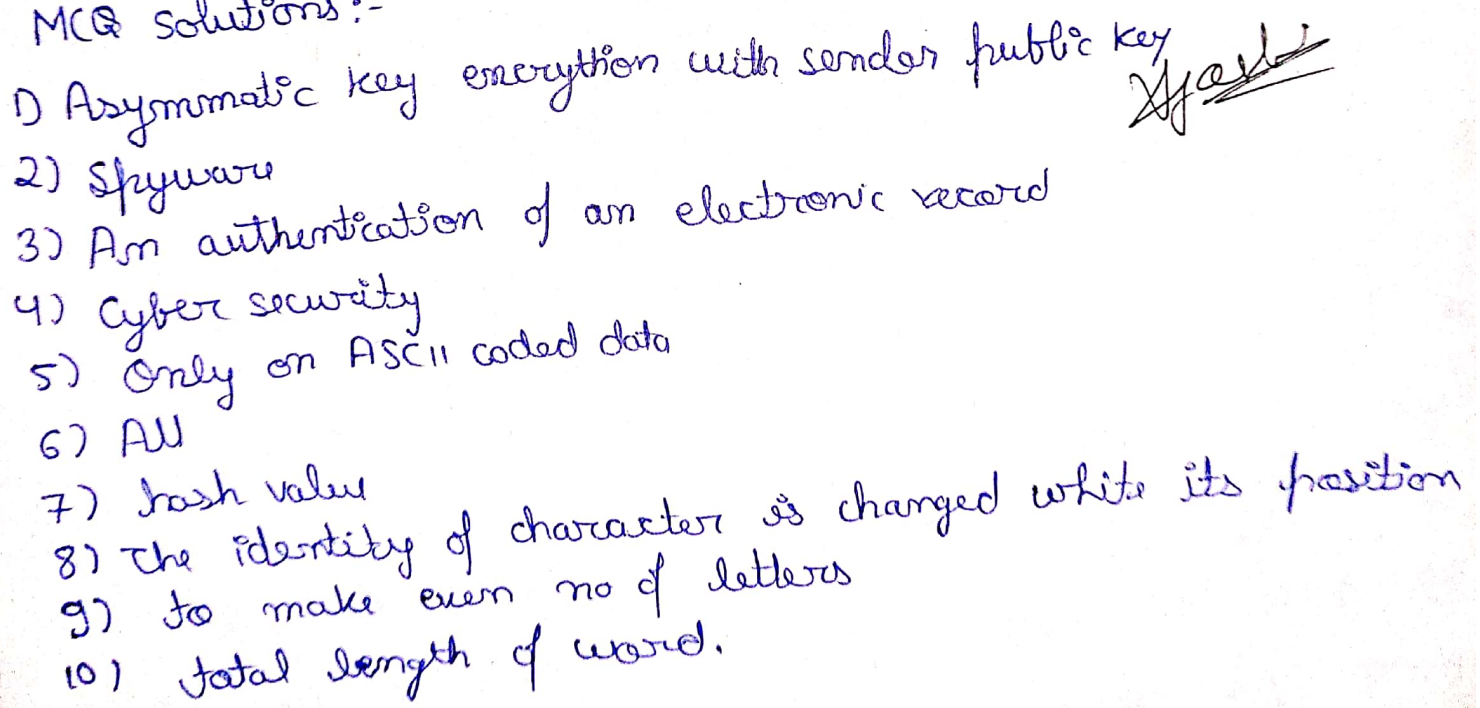 MCQ Solutions:-
1) Asymmatic key enerythion with sender public key
2) Spyware
3) An authentication of an electronic record
4) Cyber security
5) Only on ASCII coded data
6) All
7) hash value
8) The identity of character is changed white its position
9) to make even no of letters
10) total length of word.